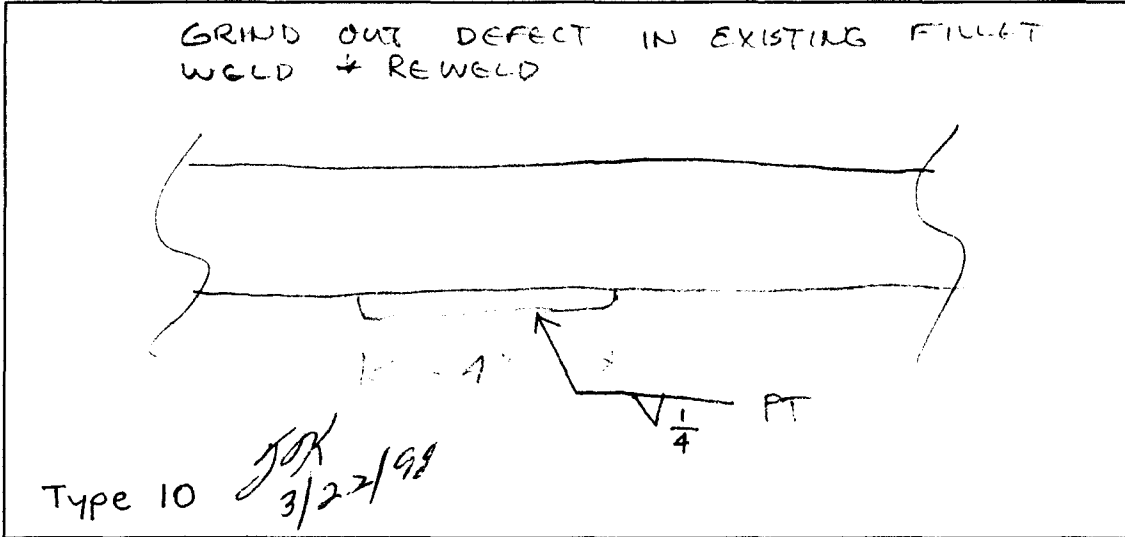 GRIND OUT DEFECT IN EXISTING FILLET
WELD & REWELD
4"
1/4 PT
Type 10
3/22/98